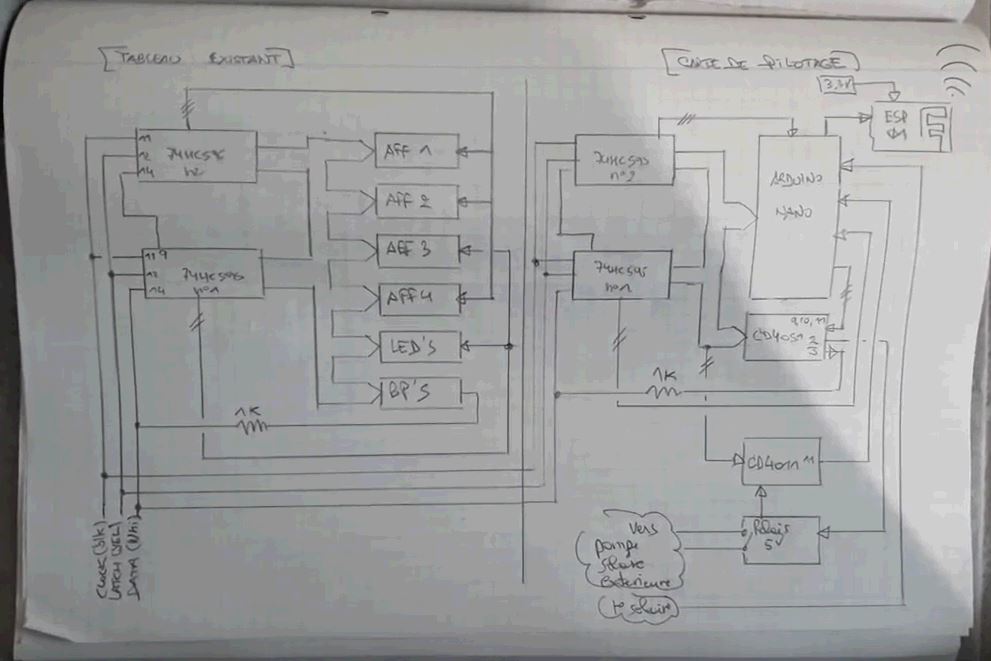 TABLEAU EXISTANT
11
12
14
74HC595
n°2
AFF 1
AFF 2
11
12
14
74HC595
n°1
AFF 3
AFF 4
LED'S
BP'S
1K
CLOCK (blk)
LATCH (YEL)
DATA (Whi)
CARTE DE PILOTAGE
3,3V
ESP
01
74HC595
n°2
ARDUINO
NANO
74HC595
n°1
9,10,11
CD4051
2
3
1K
CD4011
11
Relais
5V
Vers
pompe
solaire
exterieure
t° solaire